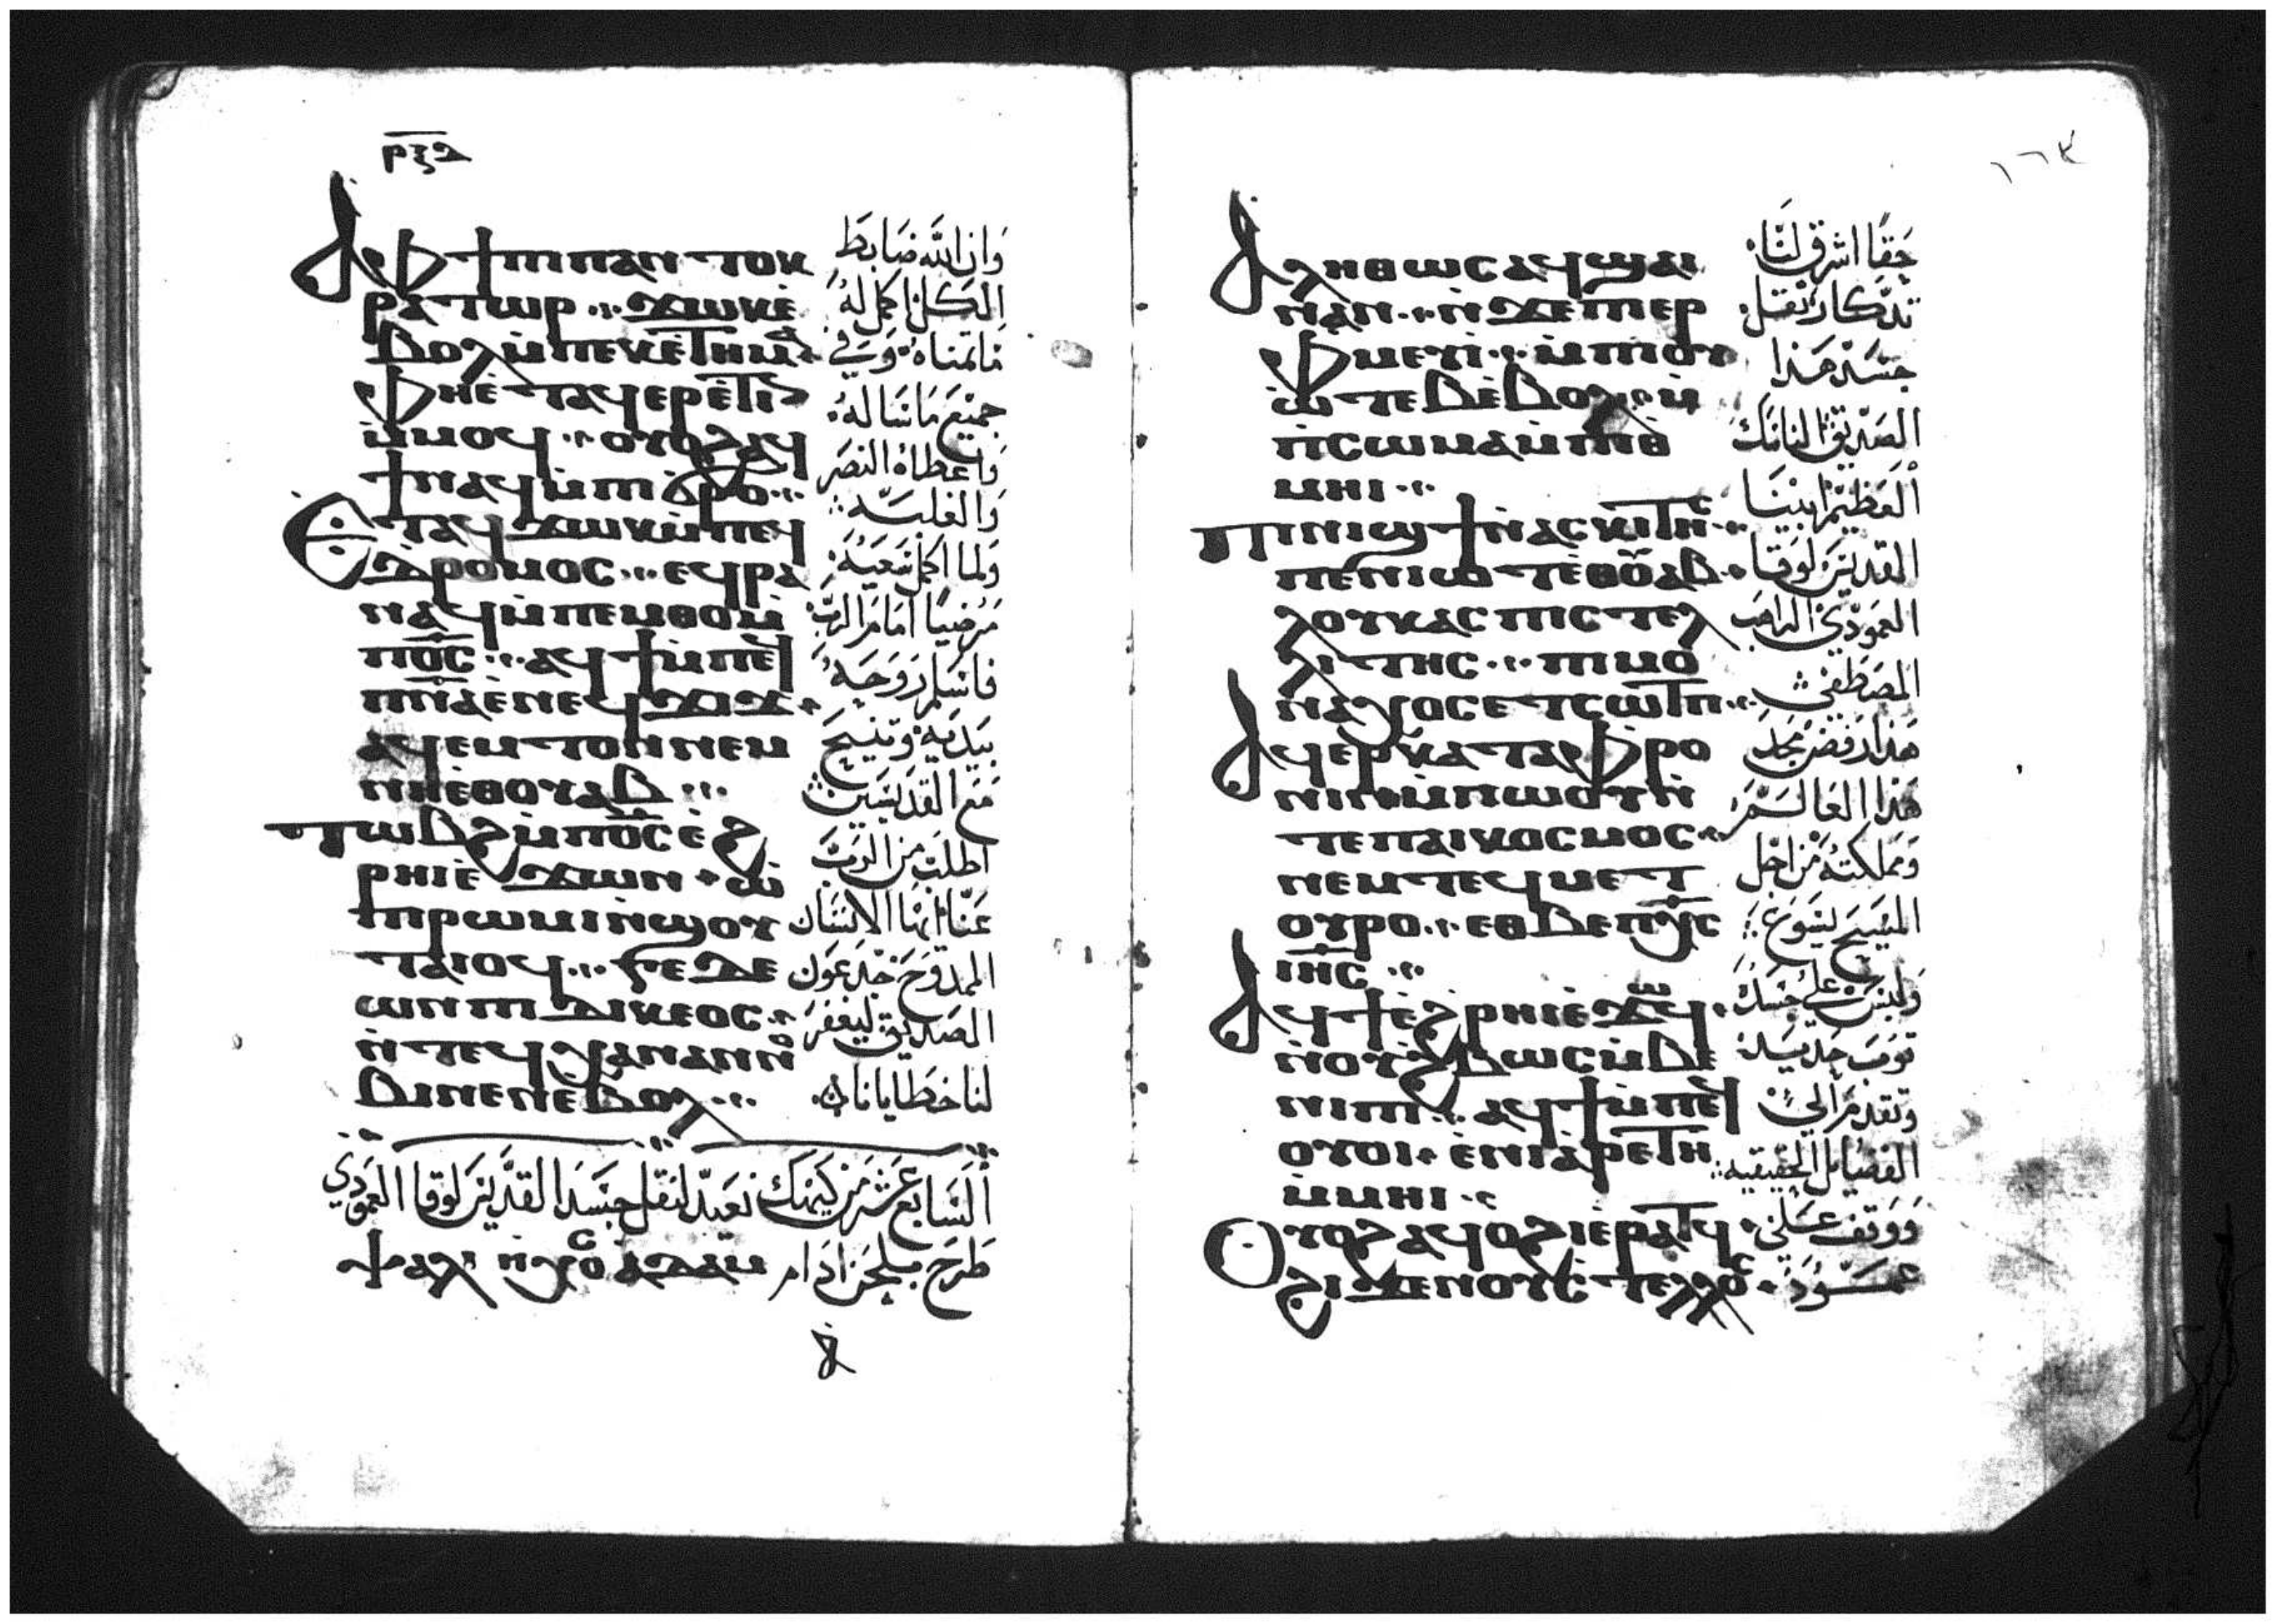 ⲣⲝⲇ
ⲁⲫϯ ⲡⲓⲡⲁⲛⲧⲟⲕ
ⲣⲁⲧⲱⲣ ⲇϫⲱⲕⲉ̀
ⲃⲟⲗ ⲙ̀ⲡⲉϥⲉ̀ⲧⲏⲙⲁ
ⲫⲏⲉ̀ⲧⲁϥⲉⲣⲉ̀ⲧⲓⲛ
ⲙ̀ⲙⲟϥ ⲟⲩⲟϩ ⲁϥ
ϯⲛⲁϥ ⲙ̀ⲡⲓϭⲣⲟ
Ⲉⲧⲁϥϫⲱⲕ ⲙ̀ⲡⲉϥ
ⲇⲣⲟⲙⲟⲥ ⲉϥⲣⲁ
ⲛⲁϥ ⲙ̀ⲡⲉⲙⲑⲟ ⲙ̀
ⲡⲟ̅ⲥ̅ ⲁϥϯ ⲙ̀ⲡⲉϥ
ⲡⲛ̅ⲁ̅ ⲉ̀ⲛⲉϥϫⲓϫ
ⲁϥⲉⲙⲧⲟⲛ ⲛⲉⲙ
ⲛⲏⲉⲑⲟⲩⲁⲃ
ⲧⲱⲃϩ ⲙ̀ⲡⲟ̅ⲥ̅ ⲉ̀ϩ
ⲣⲏⲓ ⲉ̀ϫⲱⲛ ⲱ̀
ⲡⲓⲣⲱⲙⲓ ⲛ̀ϣⲟⲩ
ⲧⲁⲓⲟϥ ⲅⲉⲇⲉ
ⲱⲛ ⲡⲓⲇⲓⲕⲉⲟⲥ
ⲛ̀ⲧⲉϥⲭⲁⲛⲉⲛⲛⲟ
ⲃⲓ ⲛⲁⲛ ⲉ̀ⲃⲟⲗ
وان الله ضابط
الكل اكمل له
ما تمناه وفي
جميع ما ساله
واعطاه النصر
والغلبه
ولما اكمل سعيه
مرضيا امام الرب
فاسلم روحه
بيديه وتنيح
مع القديسين
اطلب من الرب
عنا ايها الانسان
الممدوح جدعون
الصديق ليغفر
لنا خطايانا
السابع عشر من كيهك نعيد لنقل جسد القديس لوقا العمودي
طرح بلحن ادام ⲯⲁⲗⲓ ⲛ̀ⲏⲭⲟⲥ ⲁⲇⲁⲙ
١٦٤
Ⲁⲗⲏⲑⲱⲥ ⲁϥϣⲁⲓ
ⲛⲁⲛ ⲛ̀ϫⲉ ⲡⲓⲉⲣ
ⲫⲙⲉⲩⲓ ⲙ̀ⲡⲓⲟⲩ
ⲱ̀ⲧⲉⲃ ⲉ̀ⲃⲟⲗ ⲙ̀
ⲡⲥⲱⲙⲁ ⲙ̀ⲡⲓⲑ
ⲙⲏⲓ
Ⲡⲓⲛⲓϣϯ ⲛ̀ⲁⲥⲕⲓⲧⲏⲥ
ⲡⲉⲛⲓⲱⲧ ⲉⲑⲟⲩⲁⲃ
ⲗⲟⲩⲕⲁⲥ ⲡⲓⲥⲧⲉⲗ
ⲗⲓⲧⲏⲥ ⲡⲓⲙⲟ
ⲛⲁⲭⲟⲥ ⲉⲧⲥⲱⲧⲡ
Ⲁϥⲉⲣⲕⲁⲧⲁⲫⲣⲟ
ⲛⲓⲛ ⲙ̀ⲡⲱⲟⲩ ⲛ̀
ⲧⲉ ⲡⲁⲓⲕⲟⲥⲙⲟⲥ
ⲛⲉⲙ ⲧⲉϥⲙⲉⲧ
ⲟⲩⲣⲟ ⲉⲑⲃⲉ ⲡⲭ̅ⲥ̅
ⲓⲏ̅ⲥ̅
Ⲁϥϯ ⲉ̀ϩⲣⲏⲓ ⲉ̀ϫⲱϥ
ⲛ̀ⲟⲩϩⲃⲱⲥ ⲙ̀ⲃⲉ
ⲛⲓⲡⲓ ⲁϥϯ ⲙ̀ⲡⲉϥ
ⲟⲩⲟⲓ ⲉ̀ⲛⲓⲁⲣⲉⲧⲏ
ⲙ̀ⲙⲏⲓ
Ⲟⲩⲟϩ ⲁϥⲟϩⲓ ⲉ̀ⲣⲁⲧϥ
ϩⲓϫⲉⲛ ⲟⲩⲥⲧⲉⲗⲗⲟⲥ
حقا اشرق لنا
تذكار نقل
جسد هذا
الصديق
العظيم ابينا
القديس لوقا
العمودي الراهب
المصطفى
هذا رفض مجد
هذا العالم
ومملكته من اجل
المسيح يسوع
ولبس على جسده
ثوب حديد
وتقدم الى
الفضايل الحقيقيه
ووقف على
عمود